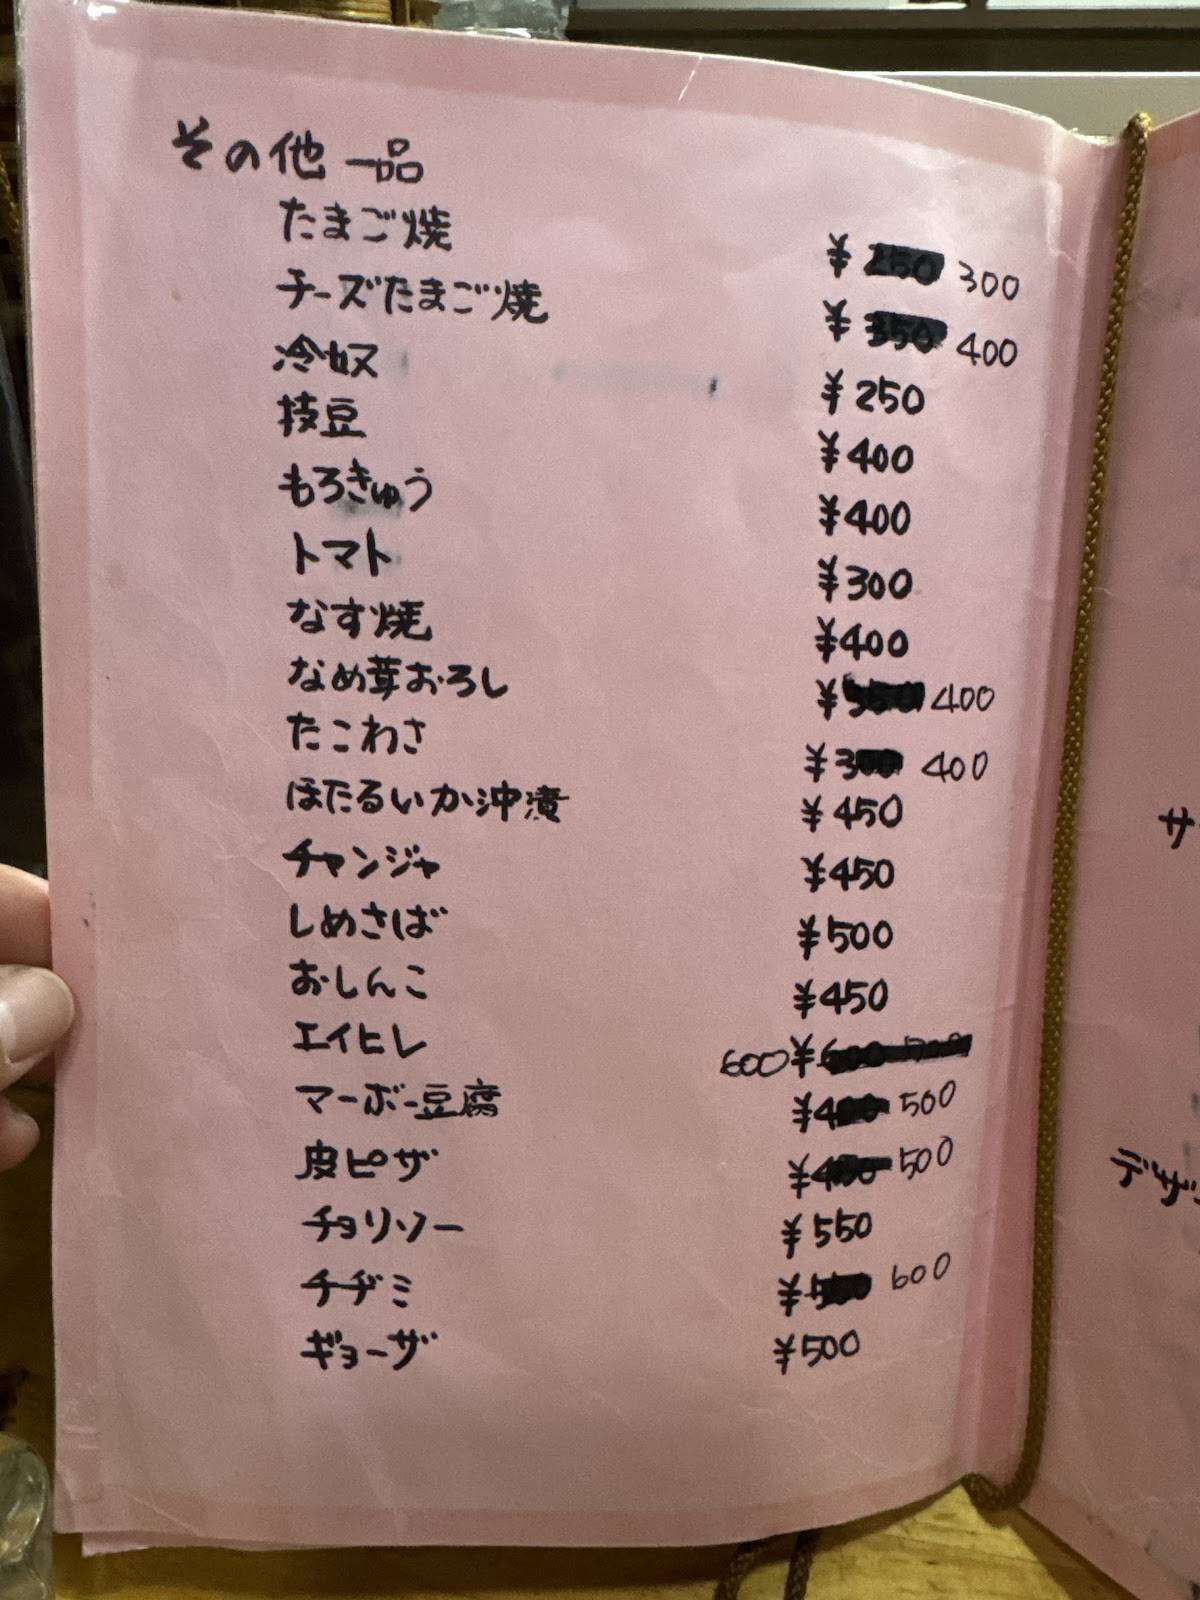 その他 一品
たまご焼 ¥ 250 300
チーズたまご焼 ¥ 350 400
冷奴 ¥250
枝豆 ¥400
もろきゅう ¥400
トマト ¥300
なす焼 ¥400
なめ茸おろし ¥350 400
たこわさ ¥300 400
ほたるいか沖漬 ¥450
チャンジャ ¥450
しめさば ¥500
おしんこ ¥450
エイヒレ 600 ¥600 700
マーボー豆腐 ¥400 500
皮ピザ ¥450 500
チョリソー ¥550
チヂミ ¥ 600
ギョーザ ¥500
サ
デザ